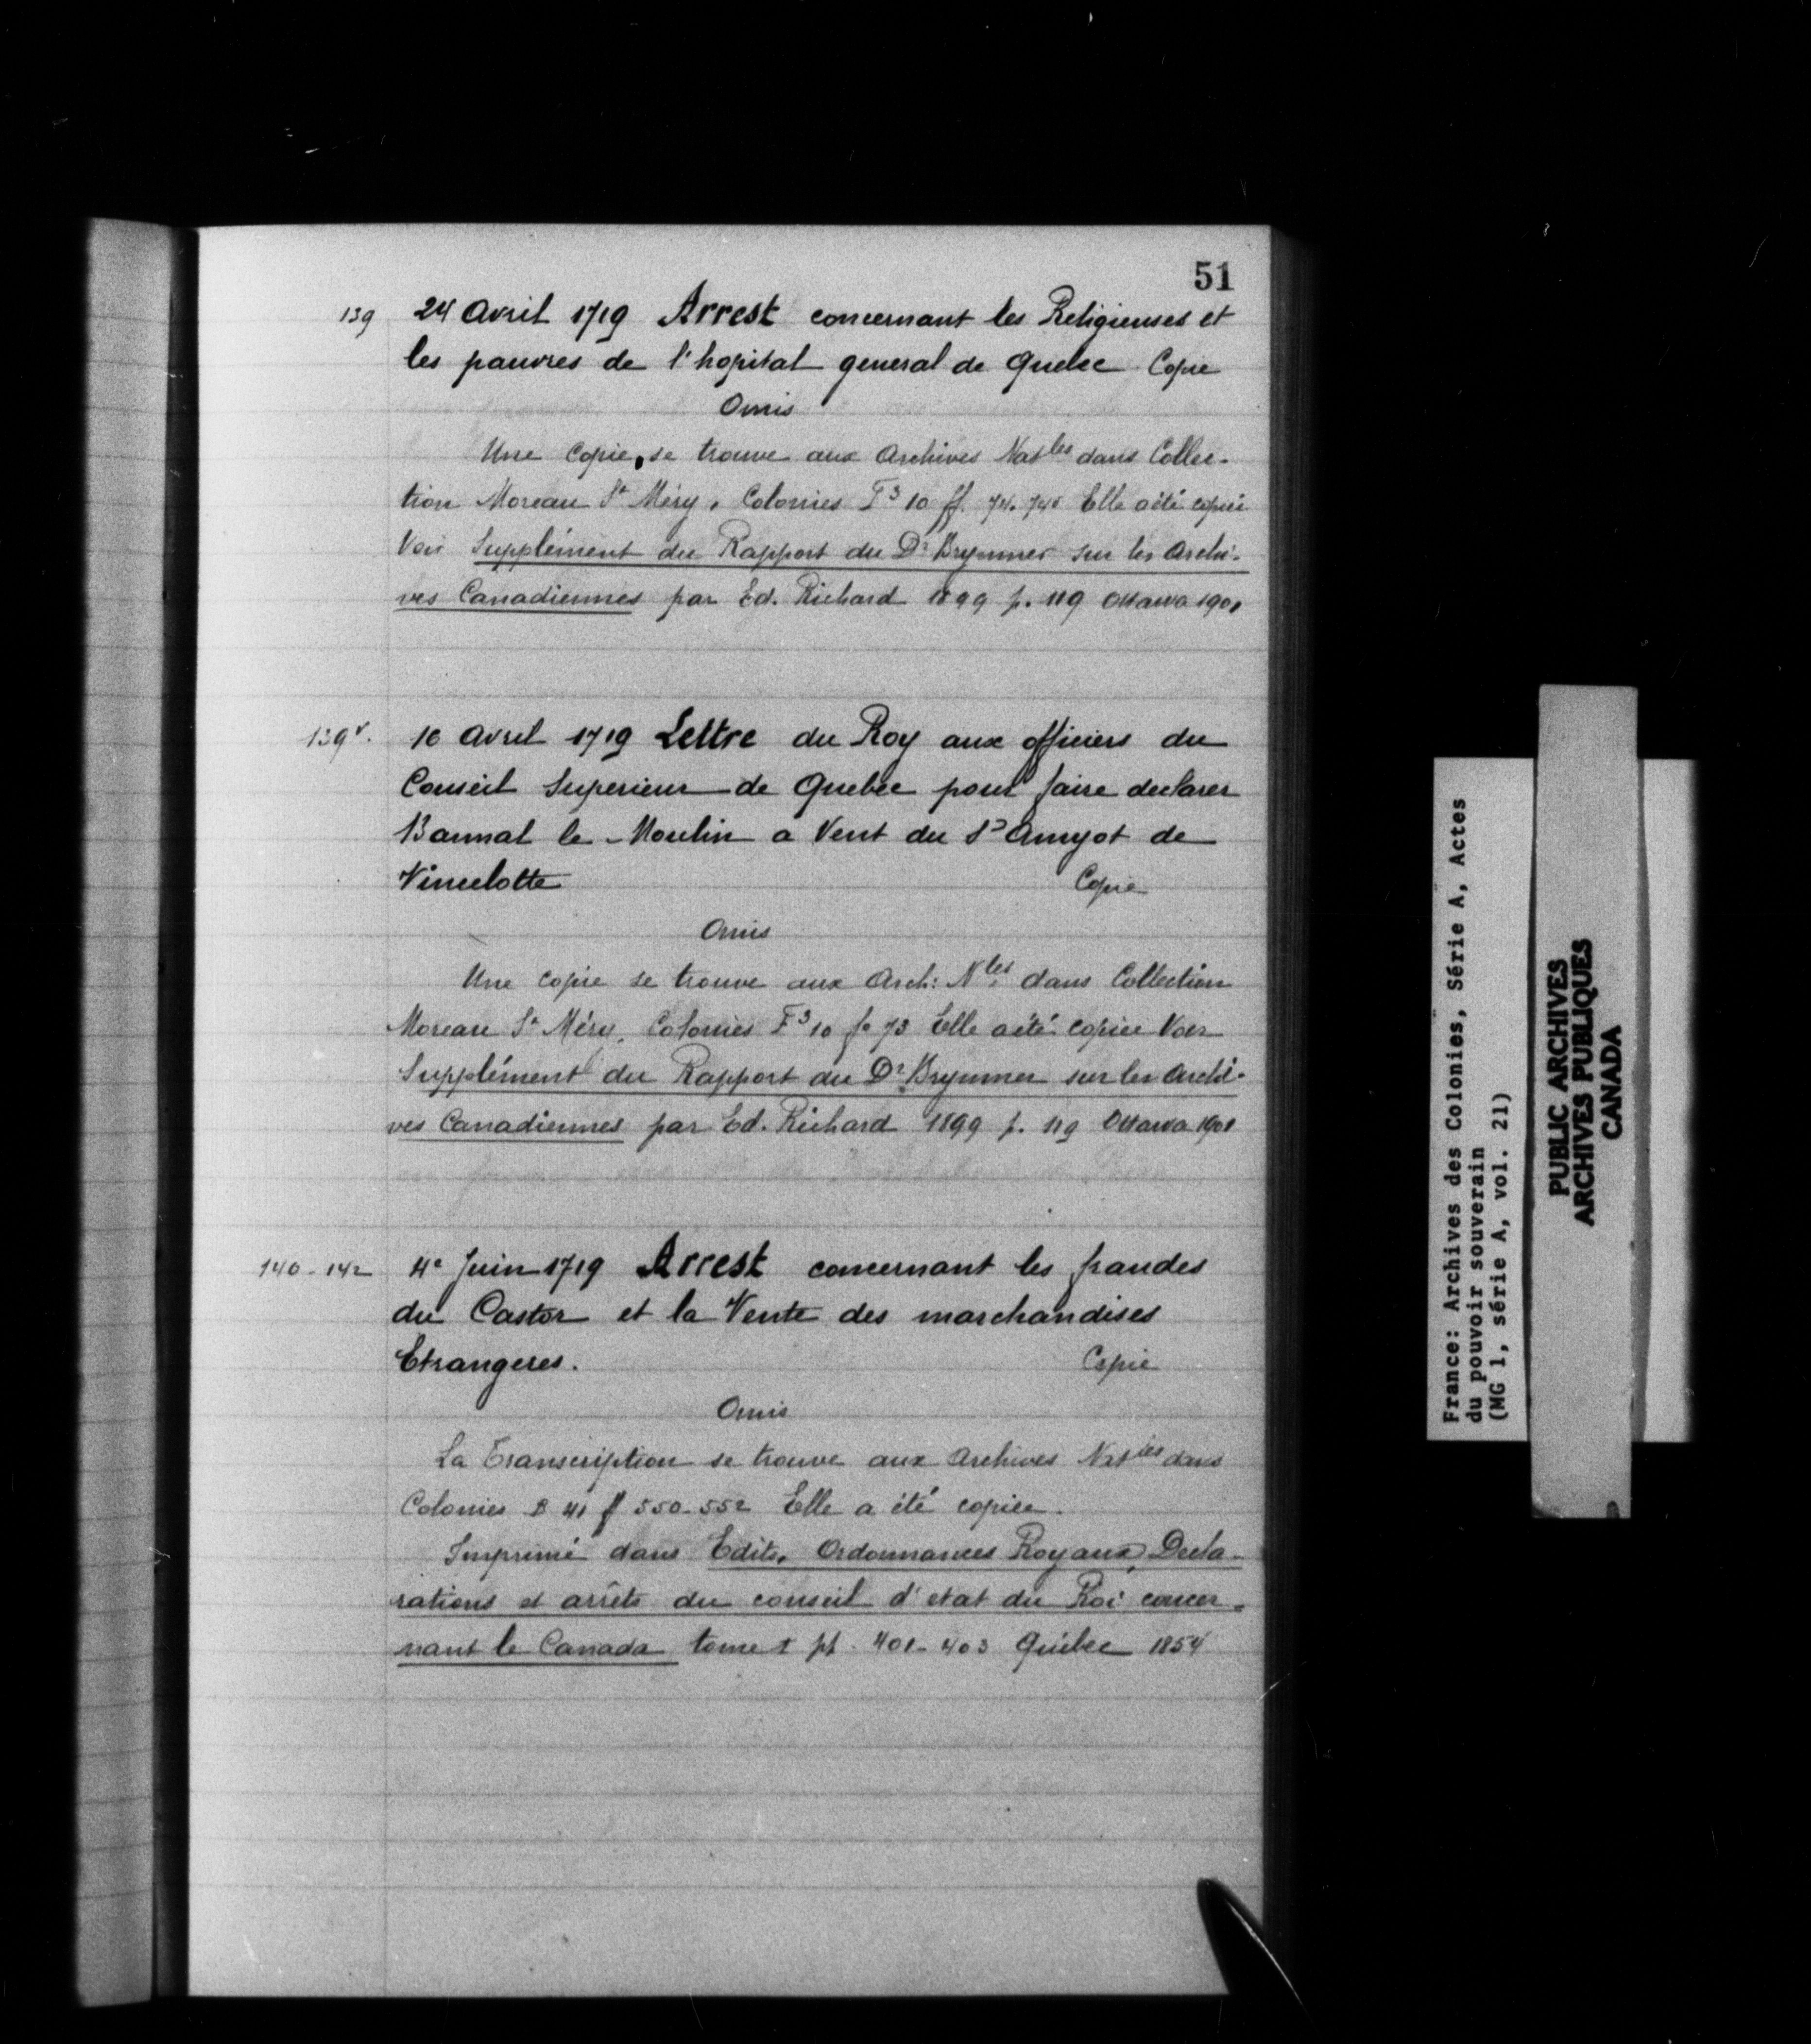 51
139 24 Avril 1719 Arrest concernant les Religieuses et
les pauvres de l'hopital general de Quebec Copie
Omis
Une Copie se trouve aux Archives Natles dans Collec-
tion Moreau St Méry, Colonies F3 10 ff. 74. 74v Elle a été copiée
Voir Supplément du Rapport du Dr Brymner sur les Archi-
ves Canadiennes par Ed. Richard 1899 p. 119 Ottawa 1901
139v. 16 Avril 1719 Lettre du Roy aux officiers du
Conseil Superieur de Quebec pour faire declarer
Bannal le Moulin a Vent du Sr Amyot de
Vincelotte Copie
Omis
Une copie se trouve aux Arch: Ntles dans Collection
Moreau St Méry, Colonies F3 10 fo 73 Elle a été copiée Voir
Supplément du Rapport du Dr Brymner sur les Archi-
ves Canadiennes par Ed. Richard 1899 p. 119 Ottawa 1901
140-142 4e Juin 1719 Arrest concernant les fraudes
du Castor et la Vente des marchandises
Etrangeres. Copie
Omis
La Transcription se trouve aux Archives Natles dans
Colonies B 41 ff 550-552 Elle a été copiée.
Imprimé dans Edits, Ordonnances Royaux, Decla-
rations et arrêts du conseil d'etat du Roi concer-
nant le Canada tome I pp. 401-403 Québec 1854
France: Archives des Colonies, Série A, Actes
du pouvoir souverain
(MG 1, série A, vol. 21)
PUBLIC ARCHIVES
ARCHIVES PUBLIQUES
CANADA